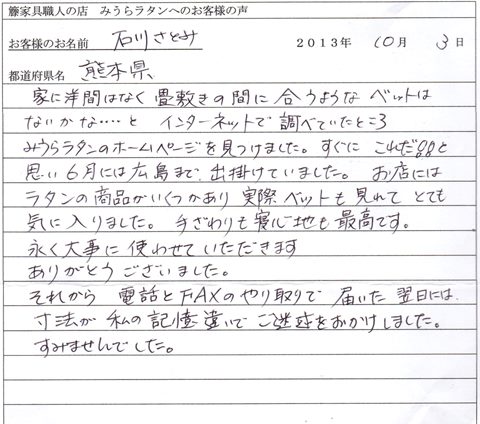 籐家具職人の店　みうらラタンへのお客様の声
お客様のお名前　石川さとみ　2013年　10月　3日
都道府県名　熊本県
家に洋間はなく畳敷きの間に合うようなベットは
ないかな‥‥と　インターネットで調べていたところ
みうらラタンのホームページを見つけました。すぐに これだ!!と
思い6月には広島まで出掛けていました。　お店には
ラタンの商品がいくつかあり 実際ベットも見れて とても
気に入りました。手ざわりも寝心地も最高です。
永く大事に使わせていただきます
ありがとうございました。
それから　電話とFAXのやり取りで　届いた翌日には
寸法が 私の記憶違いで ご迷惑をおかけしました。
すみませんでした。